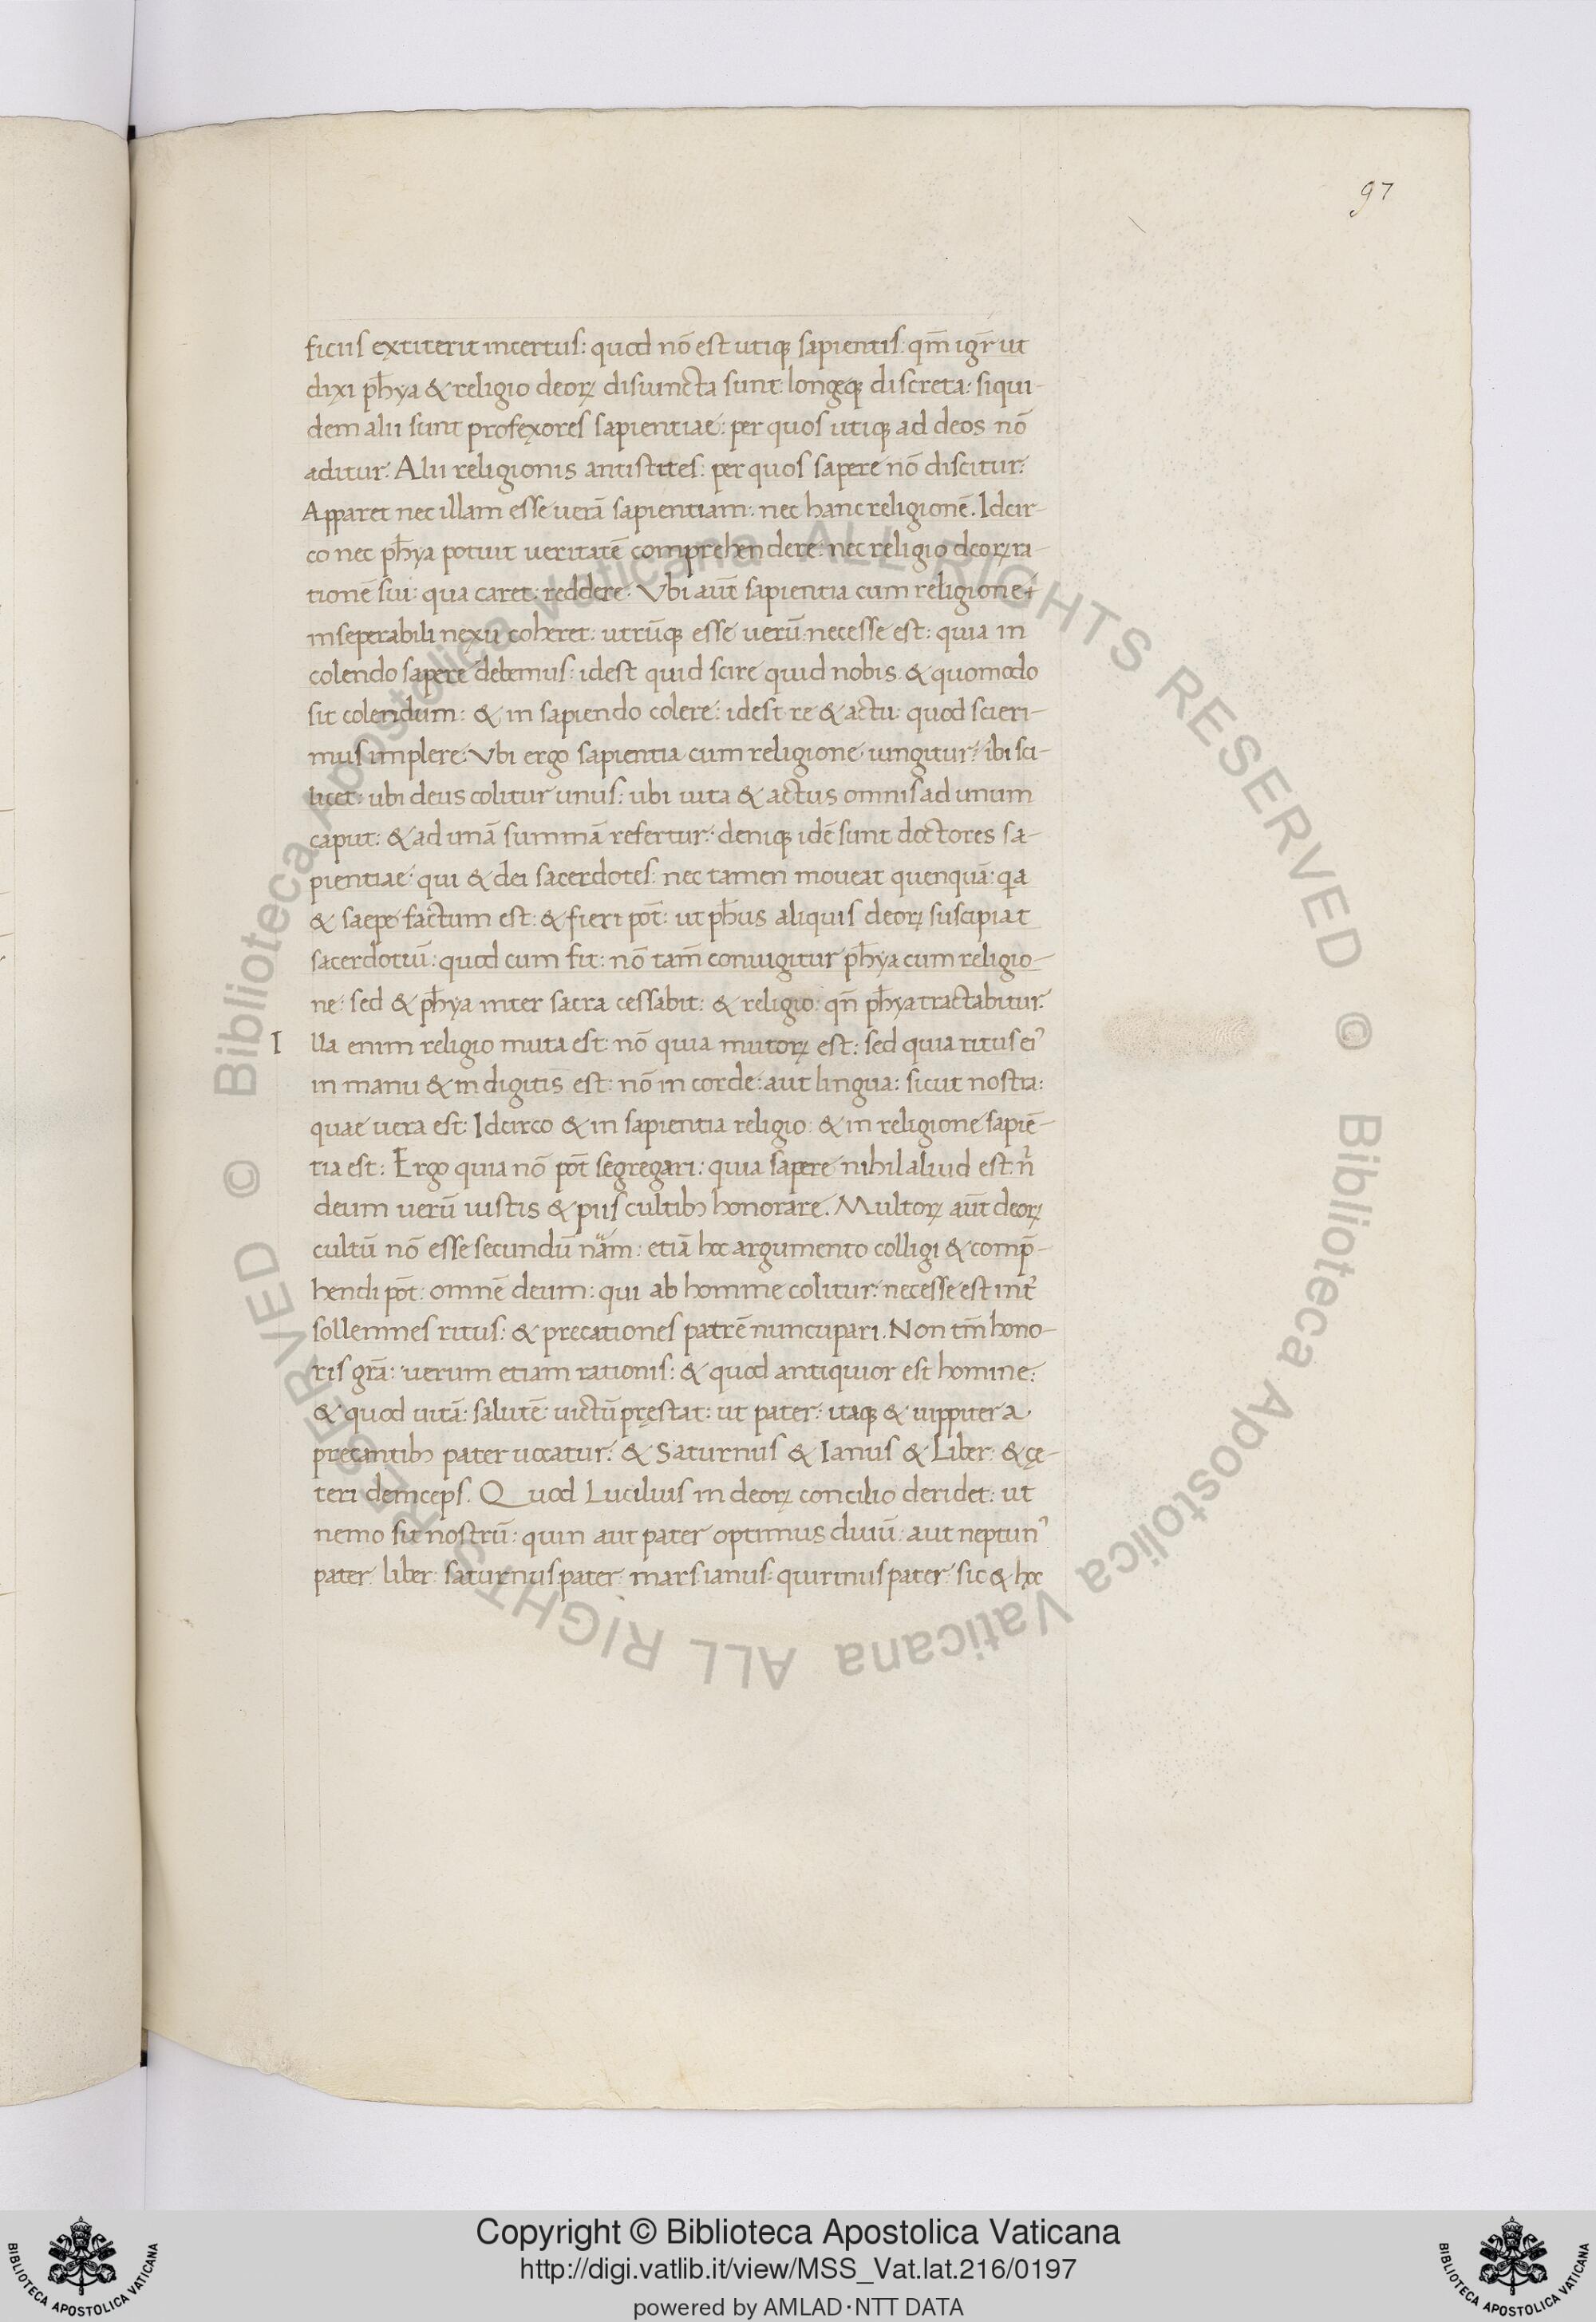 97
ficiis extiterit incertus: quod nō est utiqꝫ sapientis: qm̄ igr̄ ut
dixi ph̄ya & religio deoꝝ disiuncta sunt: longeqꝫ discreta: siqui-
dem alii sunt profexores sapientiae: per quos utiqꝫ ad deos nō
aditur. Alii religionis antistites: per quos sapere nō discitur:
Apparet nec illam esse uerā sapientiam: nec hanc religionē. Idcir-
co nec ph̄ya potuit ueritatē comprehendere: nec religio deoꝝ ra-
tionē sui: qua caret: reddere. Vbi aut̄ sapientia cum religione
inseperabili nexu coheret: utrūqꝫ esse uerū necesse est: quia in
colendo sapere debemus: idest quid scire quid nobis & quomodo
sit colendum: & in sapiendo colere: idest re & actu: quod scieri-
mus implere: Vbi ergo sapientia cum religione iungitur: ibi sci-
licet: ubi deus colitur unus: ubi uita & actus omnis ad unum
caput: & ad unā summā refertur: deniqꝫ idē sunt doctores sa-
pientiae: qui & dei sacerdotes: nec tamen moueat quenquā: qa
& saepe factum est: & fieri pot̄: ut ph̄us aliquis deoꝝ suscipiat
sacerdotiū: quod cum fit: nō tam̄ coniugitur ph̄ya cum religio-
ne: sed & ph̄ya inter sacra cessabit: & religio: qn̄ ph̄ya tractabitur:
I lla enim religio muta est: nō quia mutoꝝ est: sed quia ritus ei᾽
in manu & in digitis est: nō in corde: aut lingua: sicut nostra:
quae uera est: Idcirco & in sapientia religio: & in religione sapiē-
tia est: Ergo quia nō pot̄ segregari: quia sapere nihil aliud est n̄
deum uerū iustis & piis cultibꝫ honorare. Multoꝝ aut̄ deoꝝ
cultū nō esse secundū nām: etiā hoc argumento colligi & comp̄-
hendi pōt: omnē deum: qui ab homine colitur: necesse est int̄
sollemnes ritus: & precationes patrē nuncupari. Non tm̄ hono-
ris grā: uerum etiam rationis: & quod antiquior est homine:
& quod uitā: salutē: uictū pręstat: ut pater: itaqꝫ & iuppiter a
precantibꝫ pater uocatur: & Saturnus & Ianus & Liber: & cę-
teri deinceps. Quod Lucilius in deoꝝ concilio deridet: ut
nemo sit nostrū: quin aut pater optimus diuū: aut neptun᾽
pater: liber: saturnus pater: mars ianus: quirinus pater: sic & hoc
© Biblioteca Apostolica Vaticana ALL RIGHTS RESERVED
© Biblioteca Apostolica Vaticana ALL RIGHTS RESERVED
Copyright © Biblioteca Apostolica Vaticana
http://digi.vatlib.it/view/MSS_Vat.lat.216/0197
powered by AMLAD·NTT DATA
BIBLIOTECA APOSTOLICA VATICANA
BIBLIOTECA APOSTOLICA VATICANA